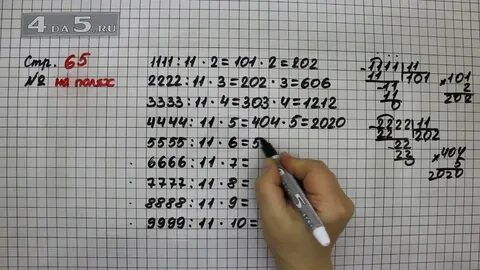 4 DA 5.RU
Стр. 65
№ на полях
1111 : 11 · 2 = 101 · 2 = 202
2222 : 11 · 3 = 202 · 3 = 606
3333 : 11 · 4 = 303 · 4 = 1212
4444 : 11 · 5 = 404 · 5 = 2020
5555 : 11 · 6 = 5
6666 : 11 · 7 =
7777 : 11 · 8 =
8888 : 11 · 9 =
9999 : 11 · 10 =
1111 11
11 101
11
11
0
101
2
202
2222 11
22 202
22
22
0
404
5
2020